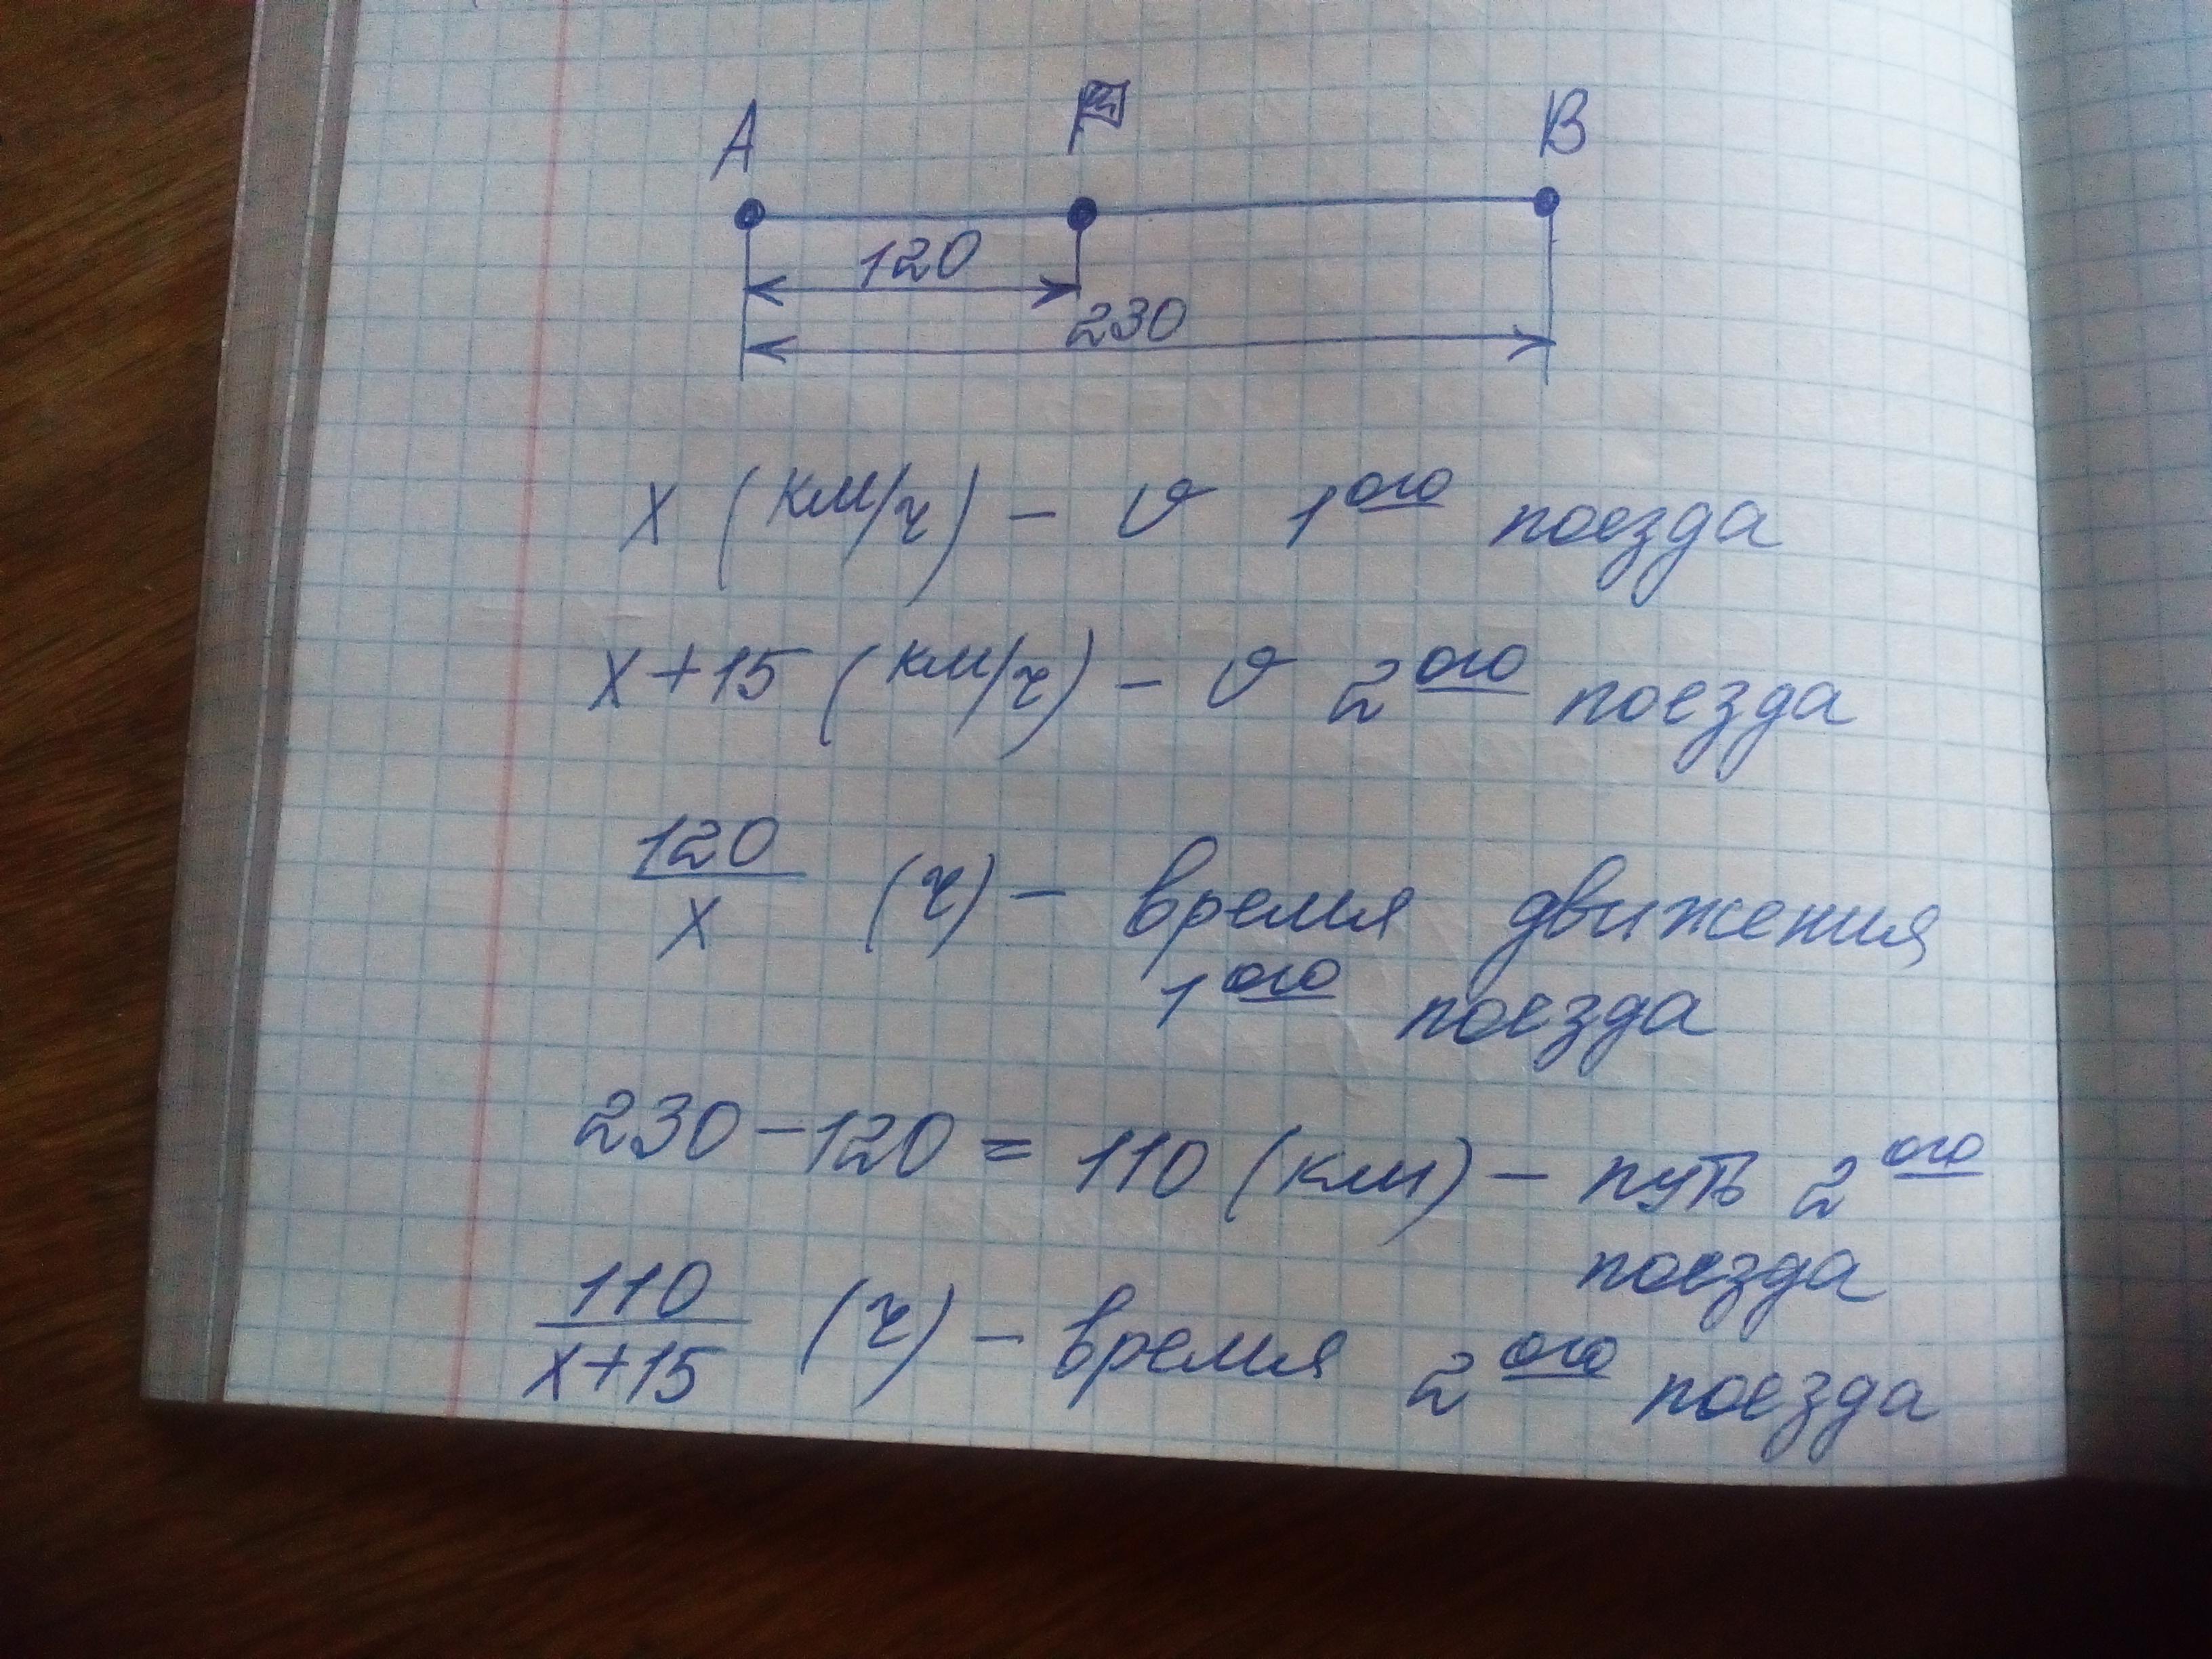 A B
120
230
x (км/ч) – v 1ого поезда
x+15 (км/ч) – v 2ого поезда
120/x (ч) – время движения
1ого поезда
230 – 120 = 110 (км) – путь 2ого
поезда
110/x+15 (ч) – время 2ого поезда